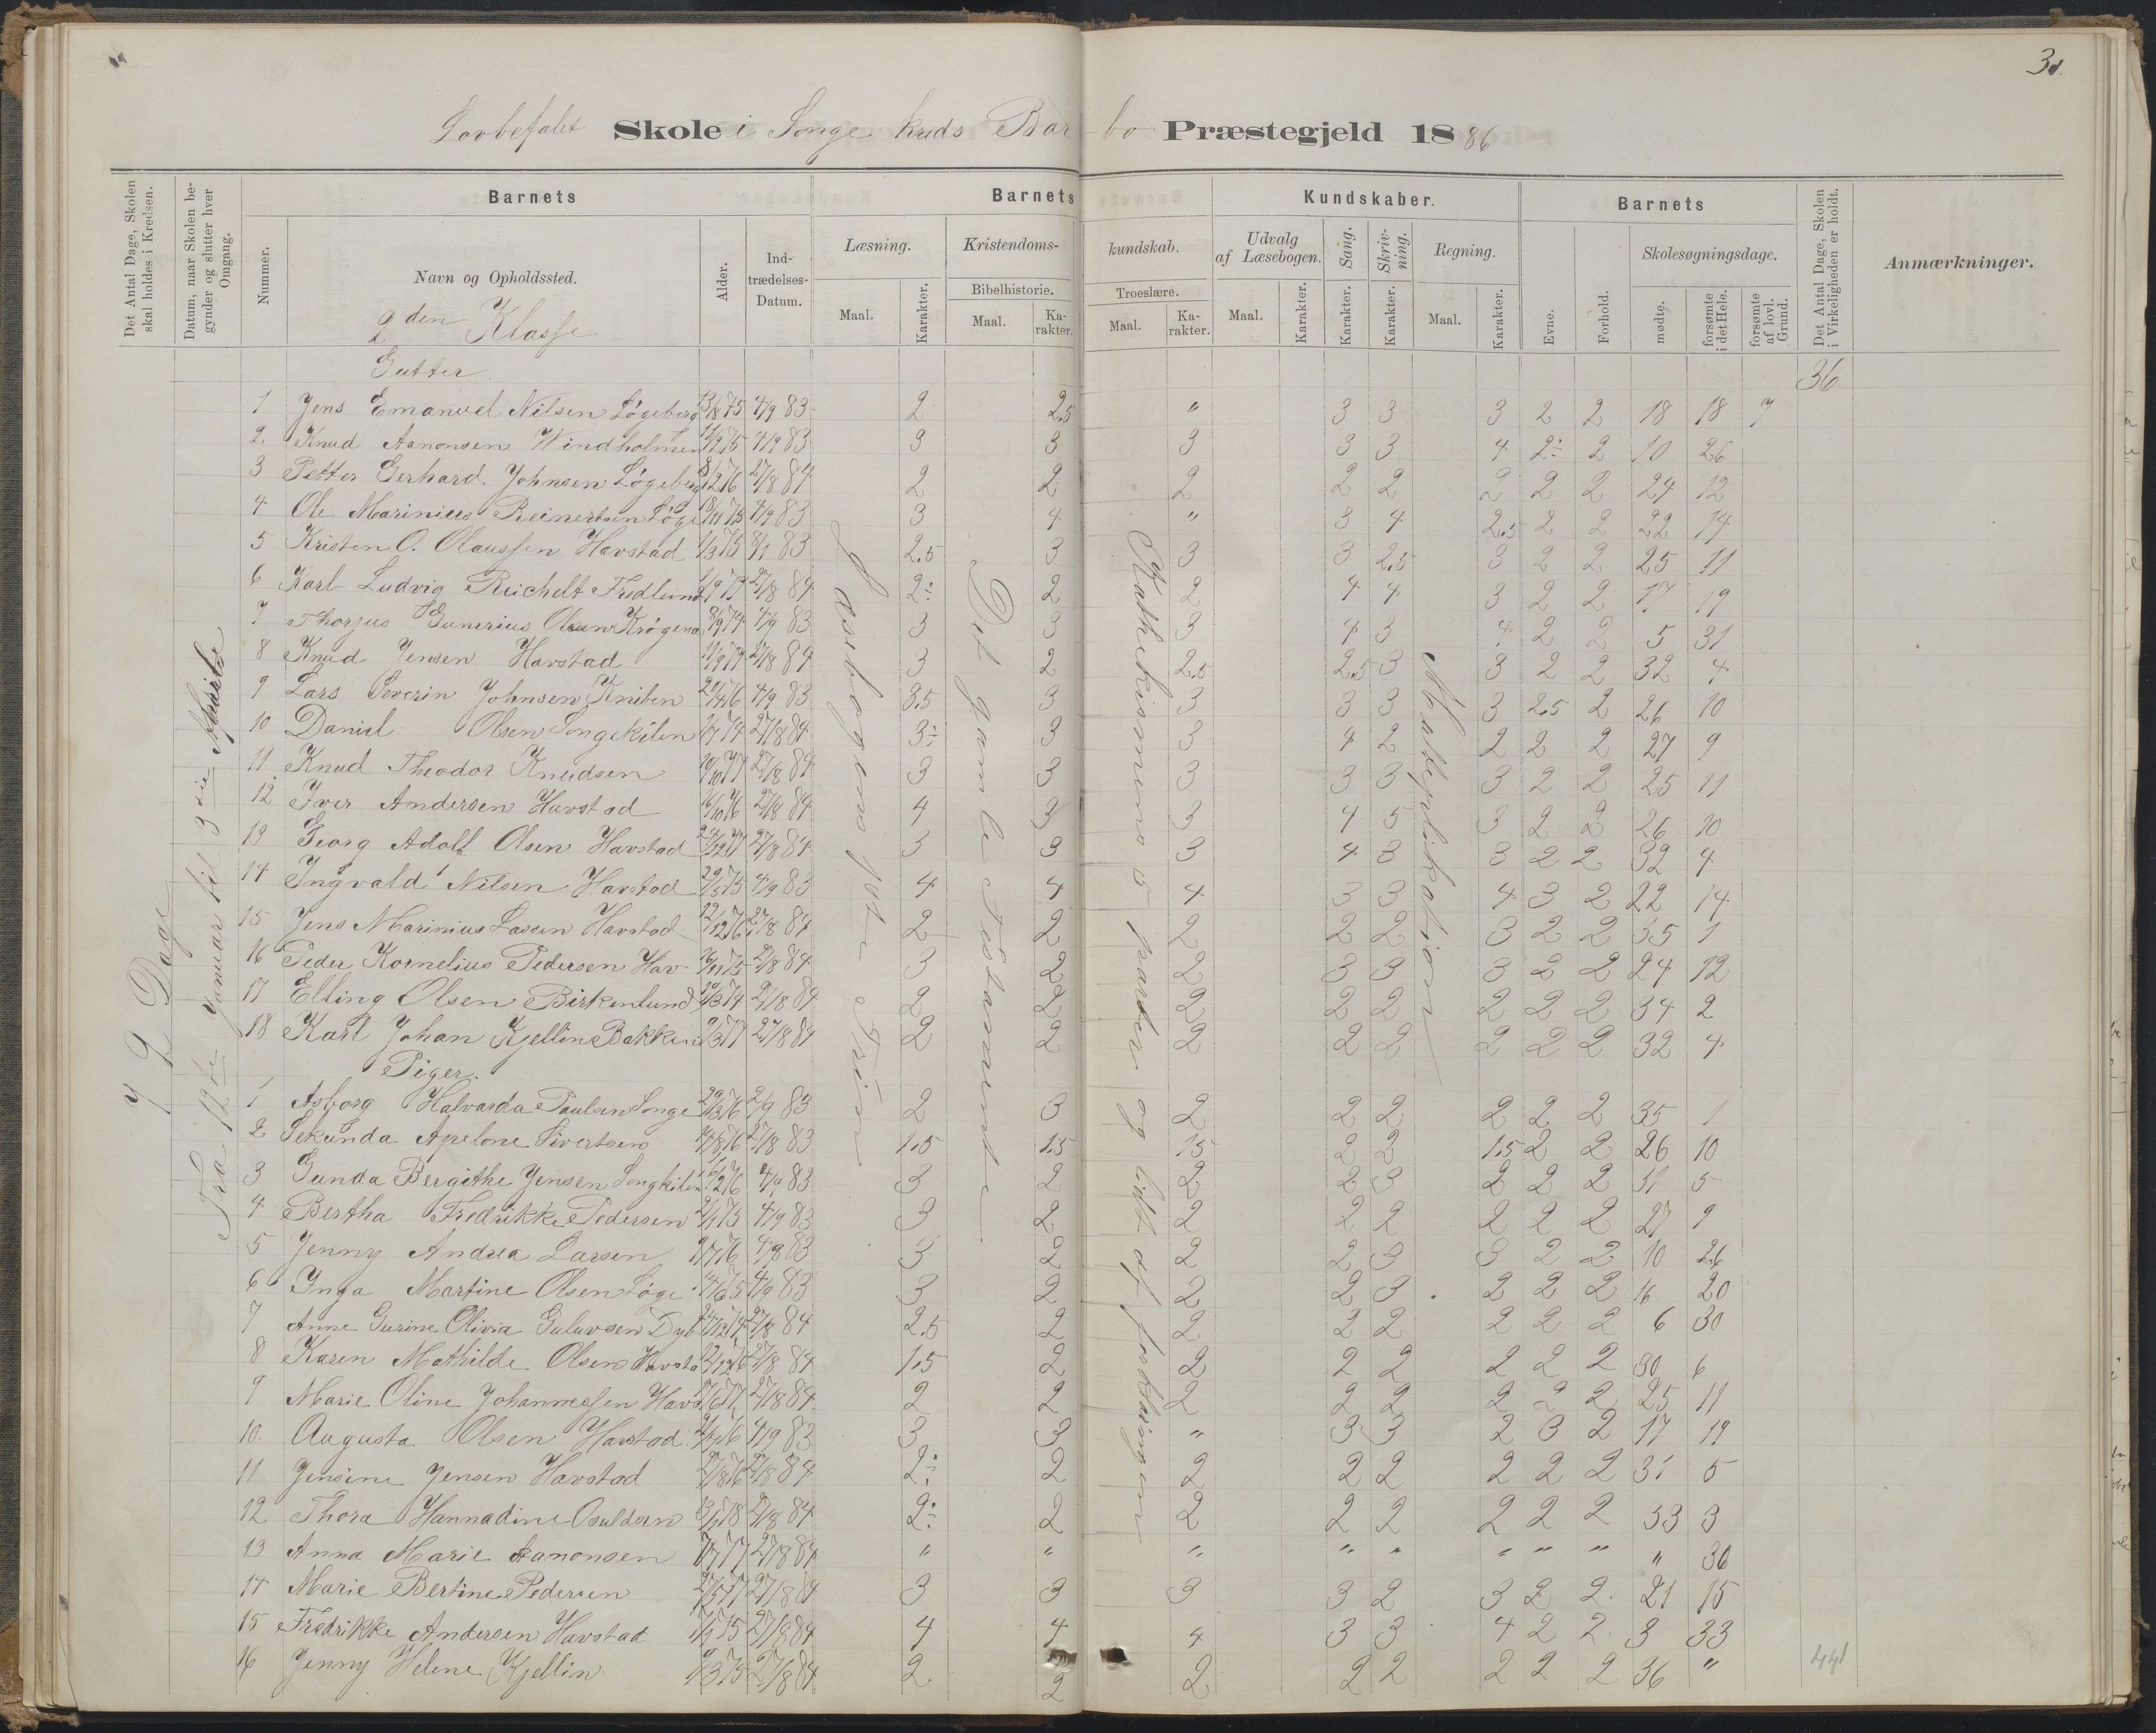 3
Lovbefalet Skole i Songe kreds Barbo Præstegjeld 1886
Det Antal Dage, Skolen skal holdes i Kredsen.
Datum, naar Skolen begynder og slutter hver Omgang.
Barnets
Nummer.
Navn og Opholdssted.
Alder.
Indtrædelses-Datum.
Barnets Kundskaber.
Læsning.
Maal.
Karakter.
Kristendomskundskab.
Bibelhistorie.
Maal.
Karakter.
Troeslære.
Maal.
Karakter.
Udvalg af Læsebogen.
Maal.
Karakter.
Sang.
Karakter.
Skrivning.
Karakter.
Regning.
Maal.
Karakter.
Barnets
Evne.
Forhold.
Skolesøgningsdage.
mødte.
forsømte i det Hele.
forsømte af lovl. Grund.
Det Antal Dage, Skolen i Virkeligheden er holdt.
Anmærkninger.
2den Klasse
Gutter
36
72 Dage
Fra 12te Januar til 3die
Læsebogens 1ste Trin
Det gamle Testamente
Katekismens 5 parter og lidt af forklaringen
Multiplikation
1 Jens Emanuel Nilsen Løgeberg 13/8 75 4/9 83 2 2.5 " 3 3 3 2 2 18 18 7
2 Knud Aanonsen Windholmen 4/9 83 3 3 3 3 3 4 2÷ 2 10 26
3 Petter Gerhard Johnsen Løgeberg 27/8 84 2 2 2 2 2 2 2 2 24 12
4 Ole Marinius Reinertsen Løge 18/11 75 4/9 83 3 4 " 3 4 2.5 2 2 22 14
5 Kristen O. Olaussen Havstad 83 2.5 3 3 3 2.5 3 2 2 25 11
6 Karl Ludvig Reichelt Fredlund 27/8 84 2÷ 2 2 4 4 3 2 2 17 19
7 Thorjus Gunerius Olsen Krøgenæs 4/9 83 3 3 3 4 3 4 2 2 5 31
8 Knud Jensen Havstad 27/8 84 3 2 2.5 2.5 3 3 2 2 32 4
9 Lars Severin Johnsen Kniben 4/9 83 3.5 3 3 3 3 3 2.5 2 26 10
10 Daniel Olsen Songekilen 27/8 84 3÷ 3 3 4 2 2 2 2 27 9
11 Knud Theodor Knudsen 10/10 77 27/8 84 3 3 3 3 3 3 2 2 25 11
12 Iver Andersen Havstad 27/8 84 4 3 3 4 5 3 2 2 26 10
13 Georg Adolf Olsen Havstad 27/8 84 3 3 3 4 3 3 2 2 32 4
14 Ingvald Nilsen Havstad 4/9 83 4 4 4 3 3 4 3 2 22 14
15 Jens Marinius Lassen Havstad 12/12 76 27/8 84 2 2 2 2 2 3 2 2 35 1
16 Peder Kornelius Pedersen Hav 16/11 75 27/8 84 3 2 2 3 3 3 2 2 24 12
17 Elling Olsen Birkenlund 27/8 84 2 2 2 2 2 2 2 2 34 2
18 Karl Johan Kjellin Bakken 9/3 77 27/8 84 2 2 2 2 2 2 2 2 32 4
Piger.
1 Asborg Halvarda Paulsen Songe 29/3 76 83 2 3 2 2 2 2 2 2 35 1
2 Sekunda Apelone Sivertsen 83 1.5 1.5 15 2 2 1.5 2 2 26 10
3 Gunda Bergithe Jensen Songkilen 4/9 83 3 2 2 2 3 2 2 2 31 5
4 Bertha Fredrikke Pedersen 4/9 83 3 2 2 2 2 2 2 2 27 9
5 Jenny Andrea Larsen 83 3 2 2 2 3 3 2 2 10 26
6 Inga Martine Olsen Løge 4/9 83 3 2 2 2 3 2 2 2 16 20
7 Anne Gurine Olivia Guluvsen Dyb 27/8 84 2.5 2 2 2 2 2 2 2 6 30
8 Karen Mathilde Olsen Havsta 27/8 84 1.5 2 2 2 2 2 2 2 30 6
9 Marie Oline Johannessen Havs 27/8 84 2 2 2 2 2 2 2 2 25 11
10. Augusta Olsen Havstad 4/9 83 3 3 " 3 3 2 3 2 17 19
11 Jensine Jensen Havstad 27/8 84 2÷ 2 2 2 2 2 2 2 31 5
12 Thora Hannadine Osuldsen 27/8 84 2÷ 2 2 2 2 2 2 2 33 3
13 Anna Marie Aanonsen 27/8 84 " " " " " " " " " 36
14 Marie Bertine Pedersen 27/8 84 3 3 3 3 2 3 2 2 21 15
15 Fredrikke Andersen Havstad 27/8 84 4 4 4 3 3 4 2 2 3 33
16 Jenny Helene Kjellin 27/8 84 2 2 2 2 2 2 2 2 36 "
441